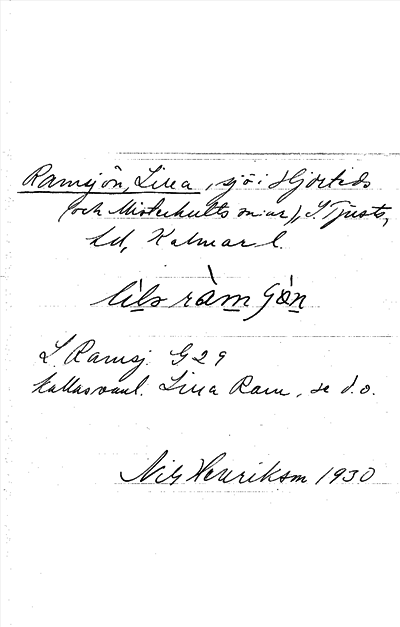 Ramsjön, Lilla, sjö i Hjorteds
(och Misterhults snar), S Tjusts
hd, Kalmar l.
L. Ramsj. G 29
kallas vanl. Lilla Ram, se d. o.
Nils Henrikson 1930